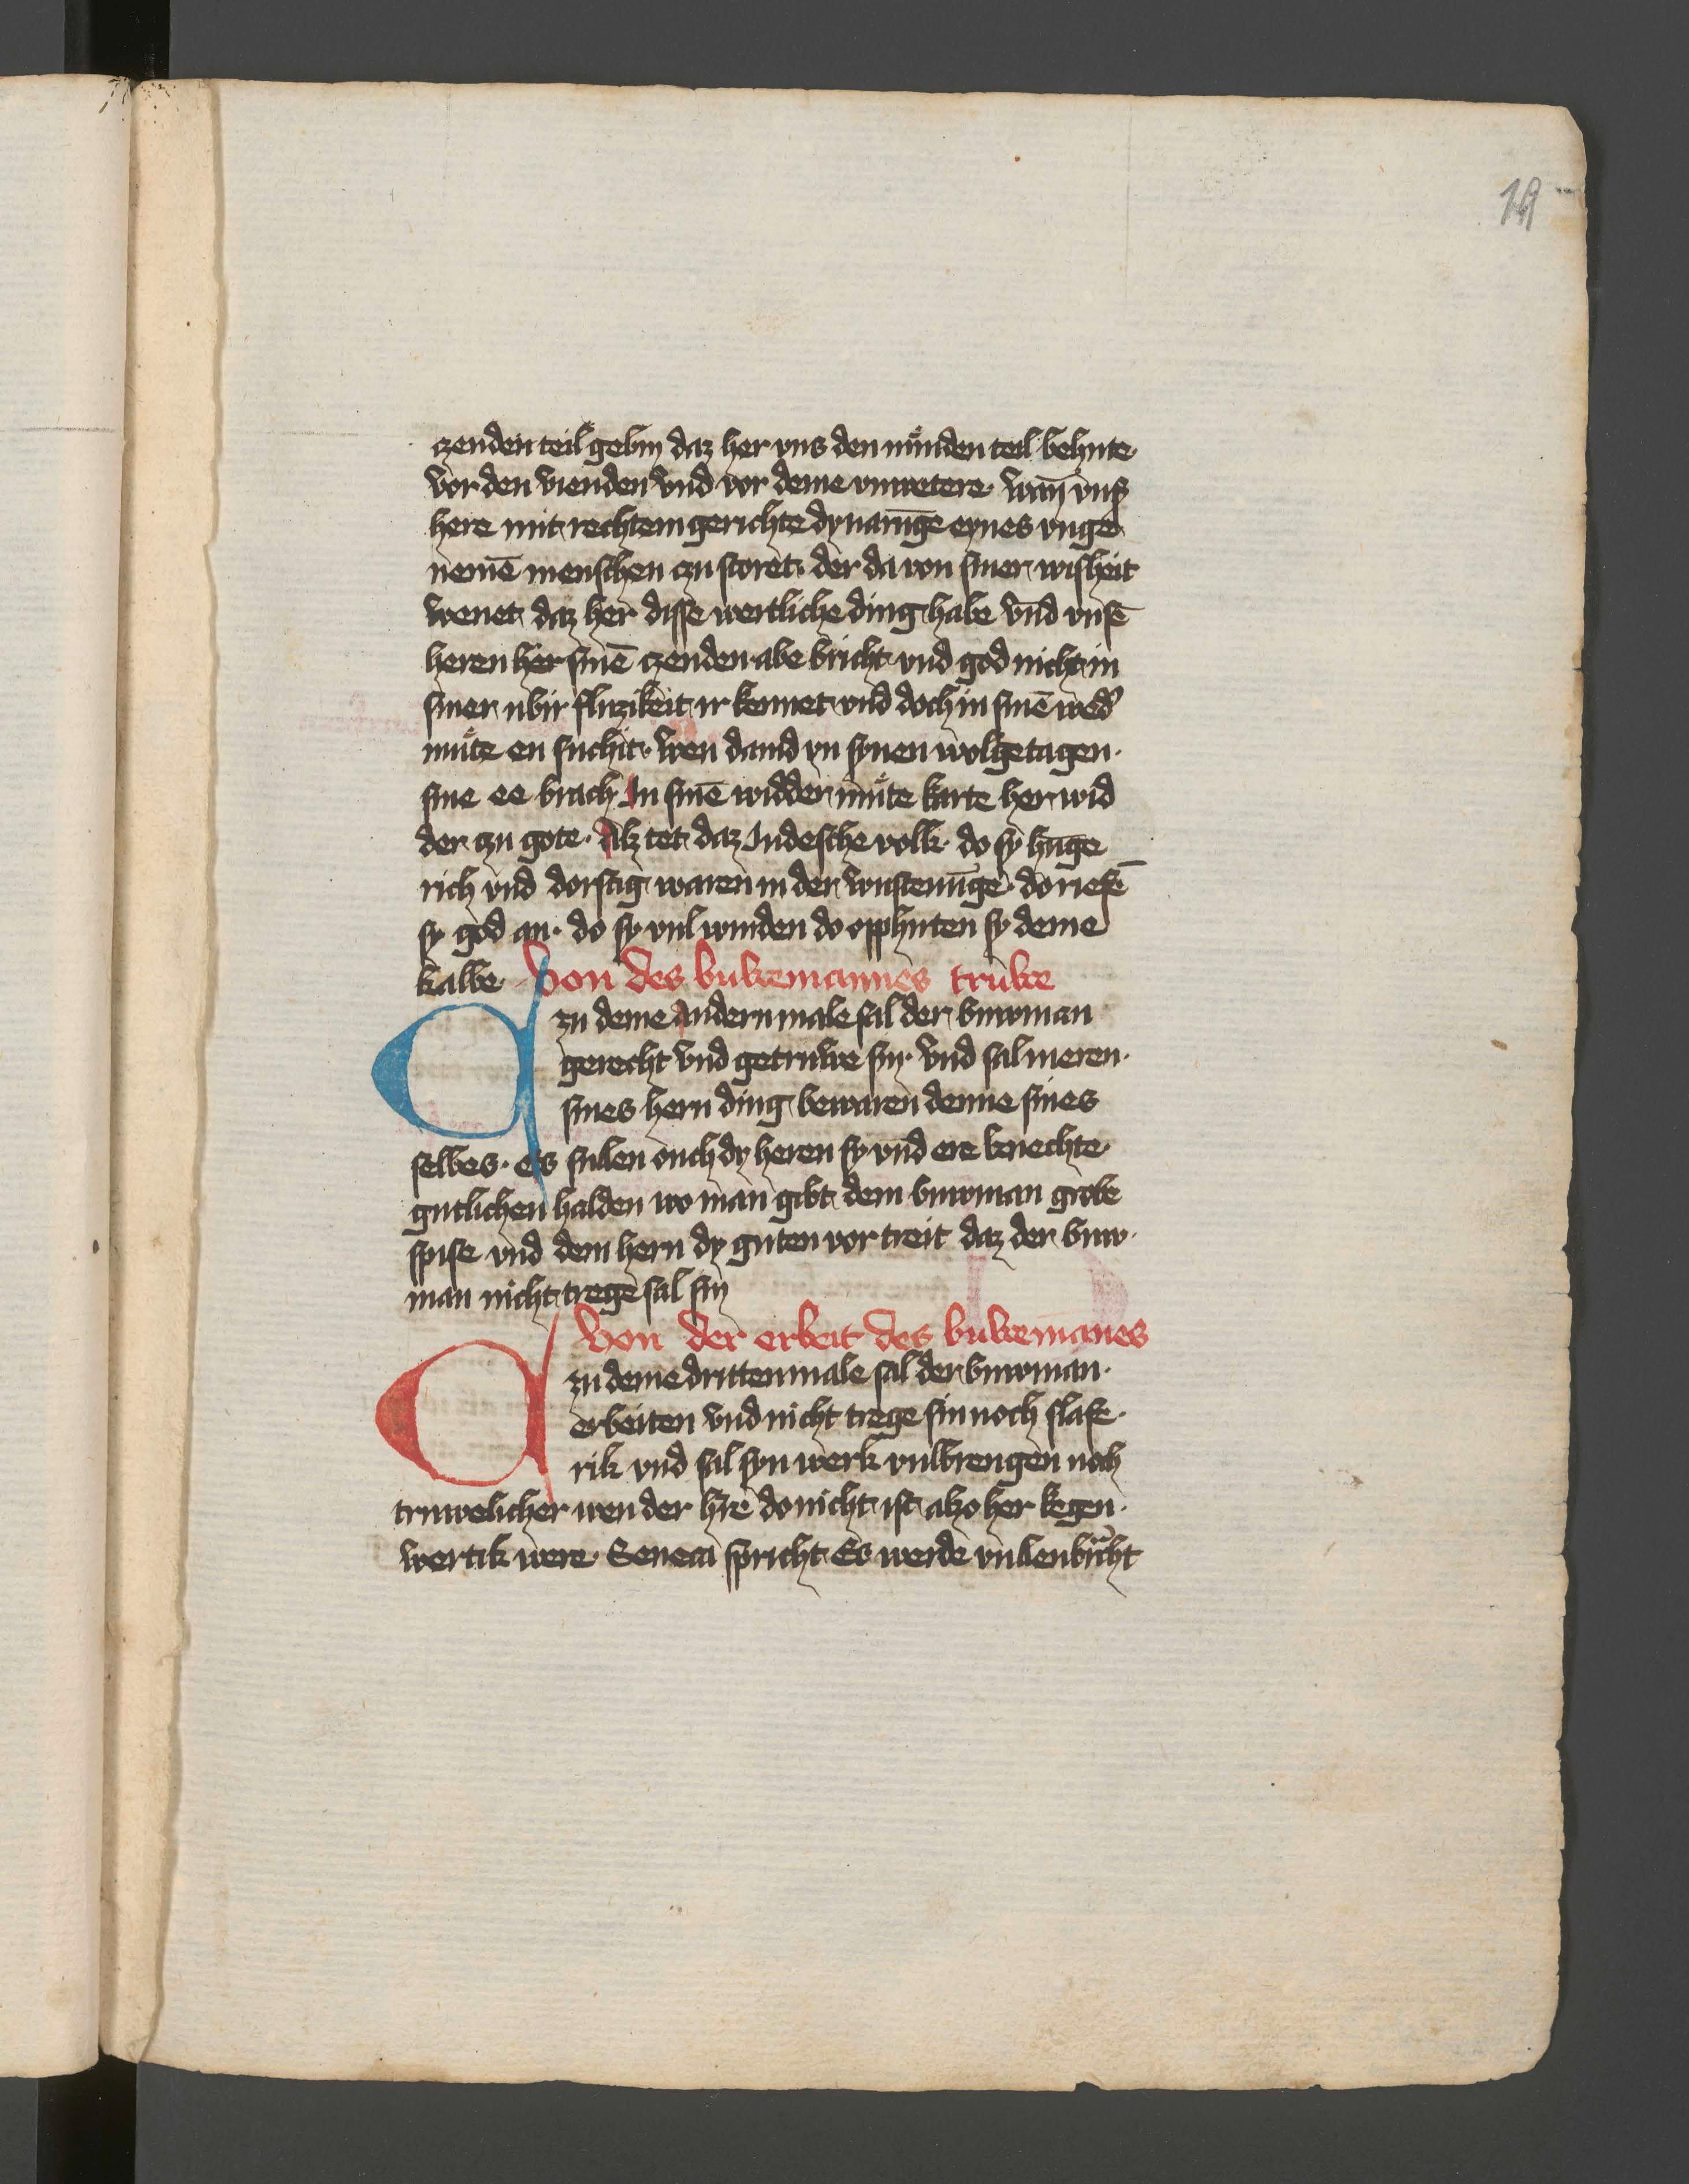 19
czenden teil gebin daz her vns den nůnden teil behute
vor den vienden vnd vor deme vnwetere. wan̄ vns̉
here mit rechtem gerichte dy narūge eynes vnge
nemē menschen czu storet. der da von siner wisheit
wenet daz her disse wertliche ding habe vnd vnsē
heren her sinē czenden abe bricht vnd god nicht in
siner ubir fluzikeit ir kennet vnd doch in sinē wedˀ
můte en suchit. wen dauid yn synen wolgetagen.
sine ee brach In sinē widder můte karte her wid
der czu gote. Alz tet daz Judesche volk. do sy hūge
rich vnd dorstig waren in der wustenūge. do riefē
sy god an. do sy vul wurden do opphirten sy deme
kalbe. Von des buwemannes truwe
Czu deme andern male sal der buwman
gerecht vnd getruwe sin. vnd sal meren.
sines hern ding bewaren denne sines
selbes. es sullen ouch dy heren sy vnd ere knechte.
gutlichen halden wo man gibt dem buwman grobe
spise vnd dem hern dy guten vor treit daz der buw.
man nicht trege sal sin
Von der erbeit des buwemānes
Czu deme dritten male sal der buwman.
erbeiten vnd nicht trege sin noch slafe.
rik vnd sal syn werk vulbrengen noch
truwelicher wen der h̄re do nicht ist alzo her kegen.
wertik were. Seneca spricht Es werde vullenbrͣcht